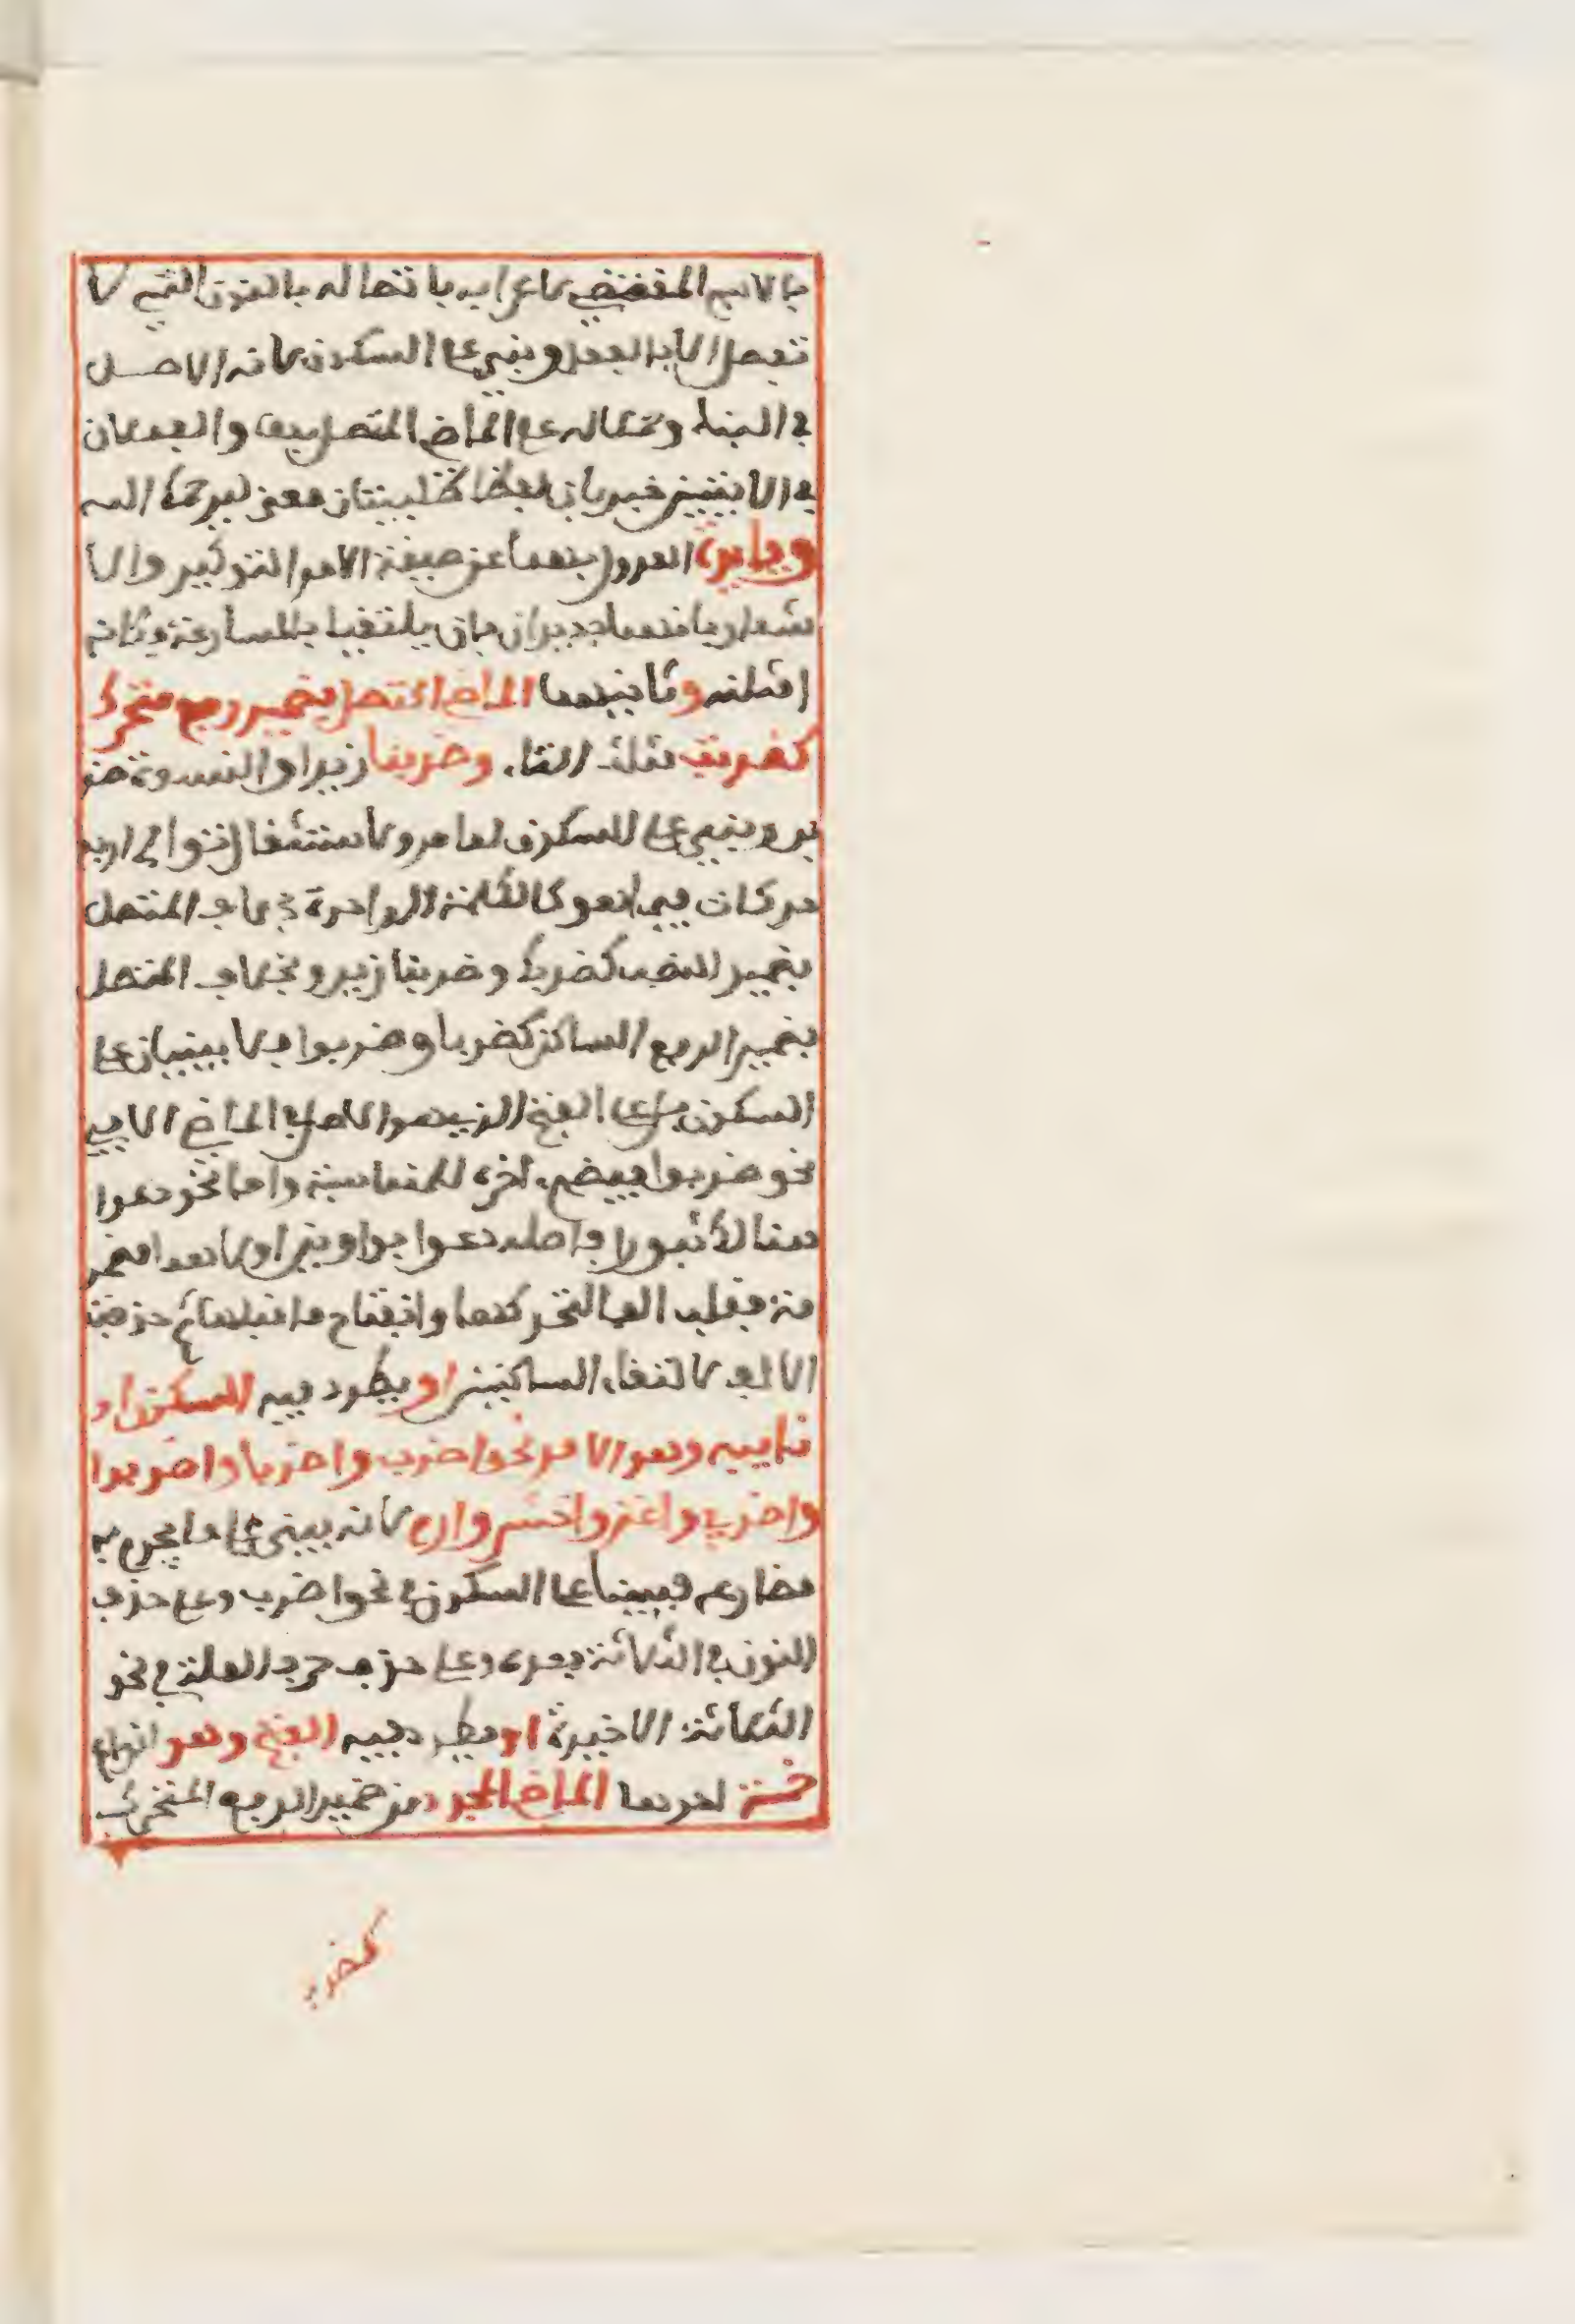 بالاسم المقتضي لاعرابه باتصاله بالنون التي لا
تتصل الا بالفعل وبني على السكون لانه الاصل
في البناء وحملا له على الماضي المتصل بها والفعلان
في الايتين خبريان لفظا طلبيتان معنى ليرحمك الله
وفايدة العدول بهما عن صيغة الامر التوكيد والا
شعار بانهما جديران بان يتلقيا بالمسارعة
امثلته وثانيهما الماضي المتصل بضمير رفع متحرك
كضربت بتثليث التاء وضربنا زيدا والنسوة ضر
بن وبني على السكون لما مر ولاستثقال توالي اربع
حركات فيما هو كالكلمة الواحدة بخلاف المتصل
بضمير النصب كضربك وضربنا زيد وبخلاف المتصل
بضمير الرفع الساكن كضربا وضربوا فلا يبنيان على
السكون بل على الفتح الذي هو الاصل في الماضي الا في
نحو ضربوا فيضم اخره للمناسبة واما نحو دعوا
هنالك ثبورا فاصله دعووا بواوين اولاهما مضمو
مة فقلبت الفا لتحركها وانفتاح ما قبلها ثم حذفت
الالف لالتقاء الساكنين او يطرد فيه السكون او
نايبه وهو الامر نحو اضرب واضربا واضربوا
واضربي واغز واخش وارم لانه يبنى على ما يجزم به
مضارعه فيبنا على السكون في نحو اضرب وعلى حذف
النون في الثلاثة بعده وعلى حذف حرف العلة في نحو
الثلاثة الاخيرة او يطرد فيه الفتح وهو انواع
خمسة احدها الماضي المجرد من ضمير الرفع المتحرك
كضرب